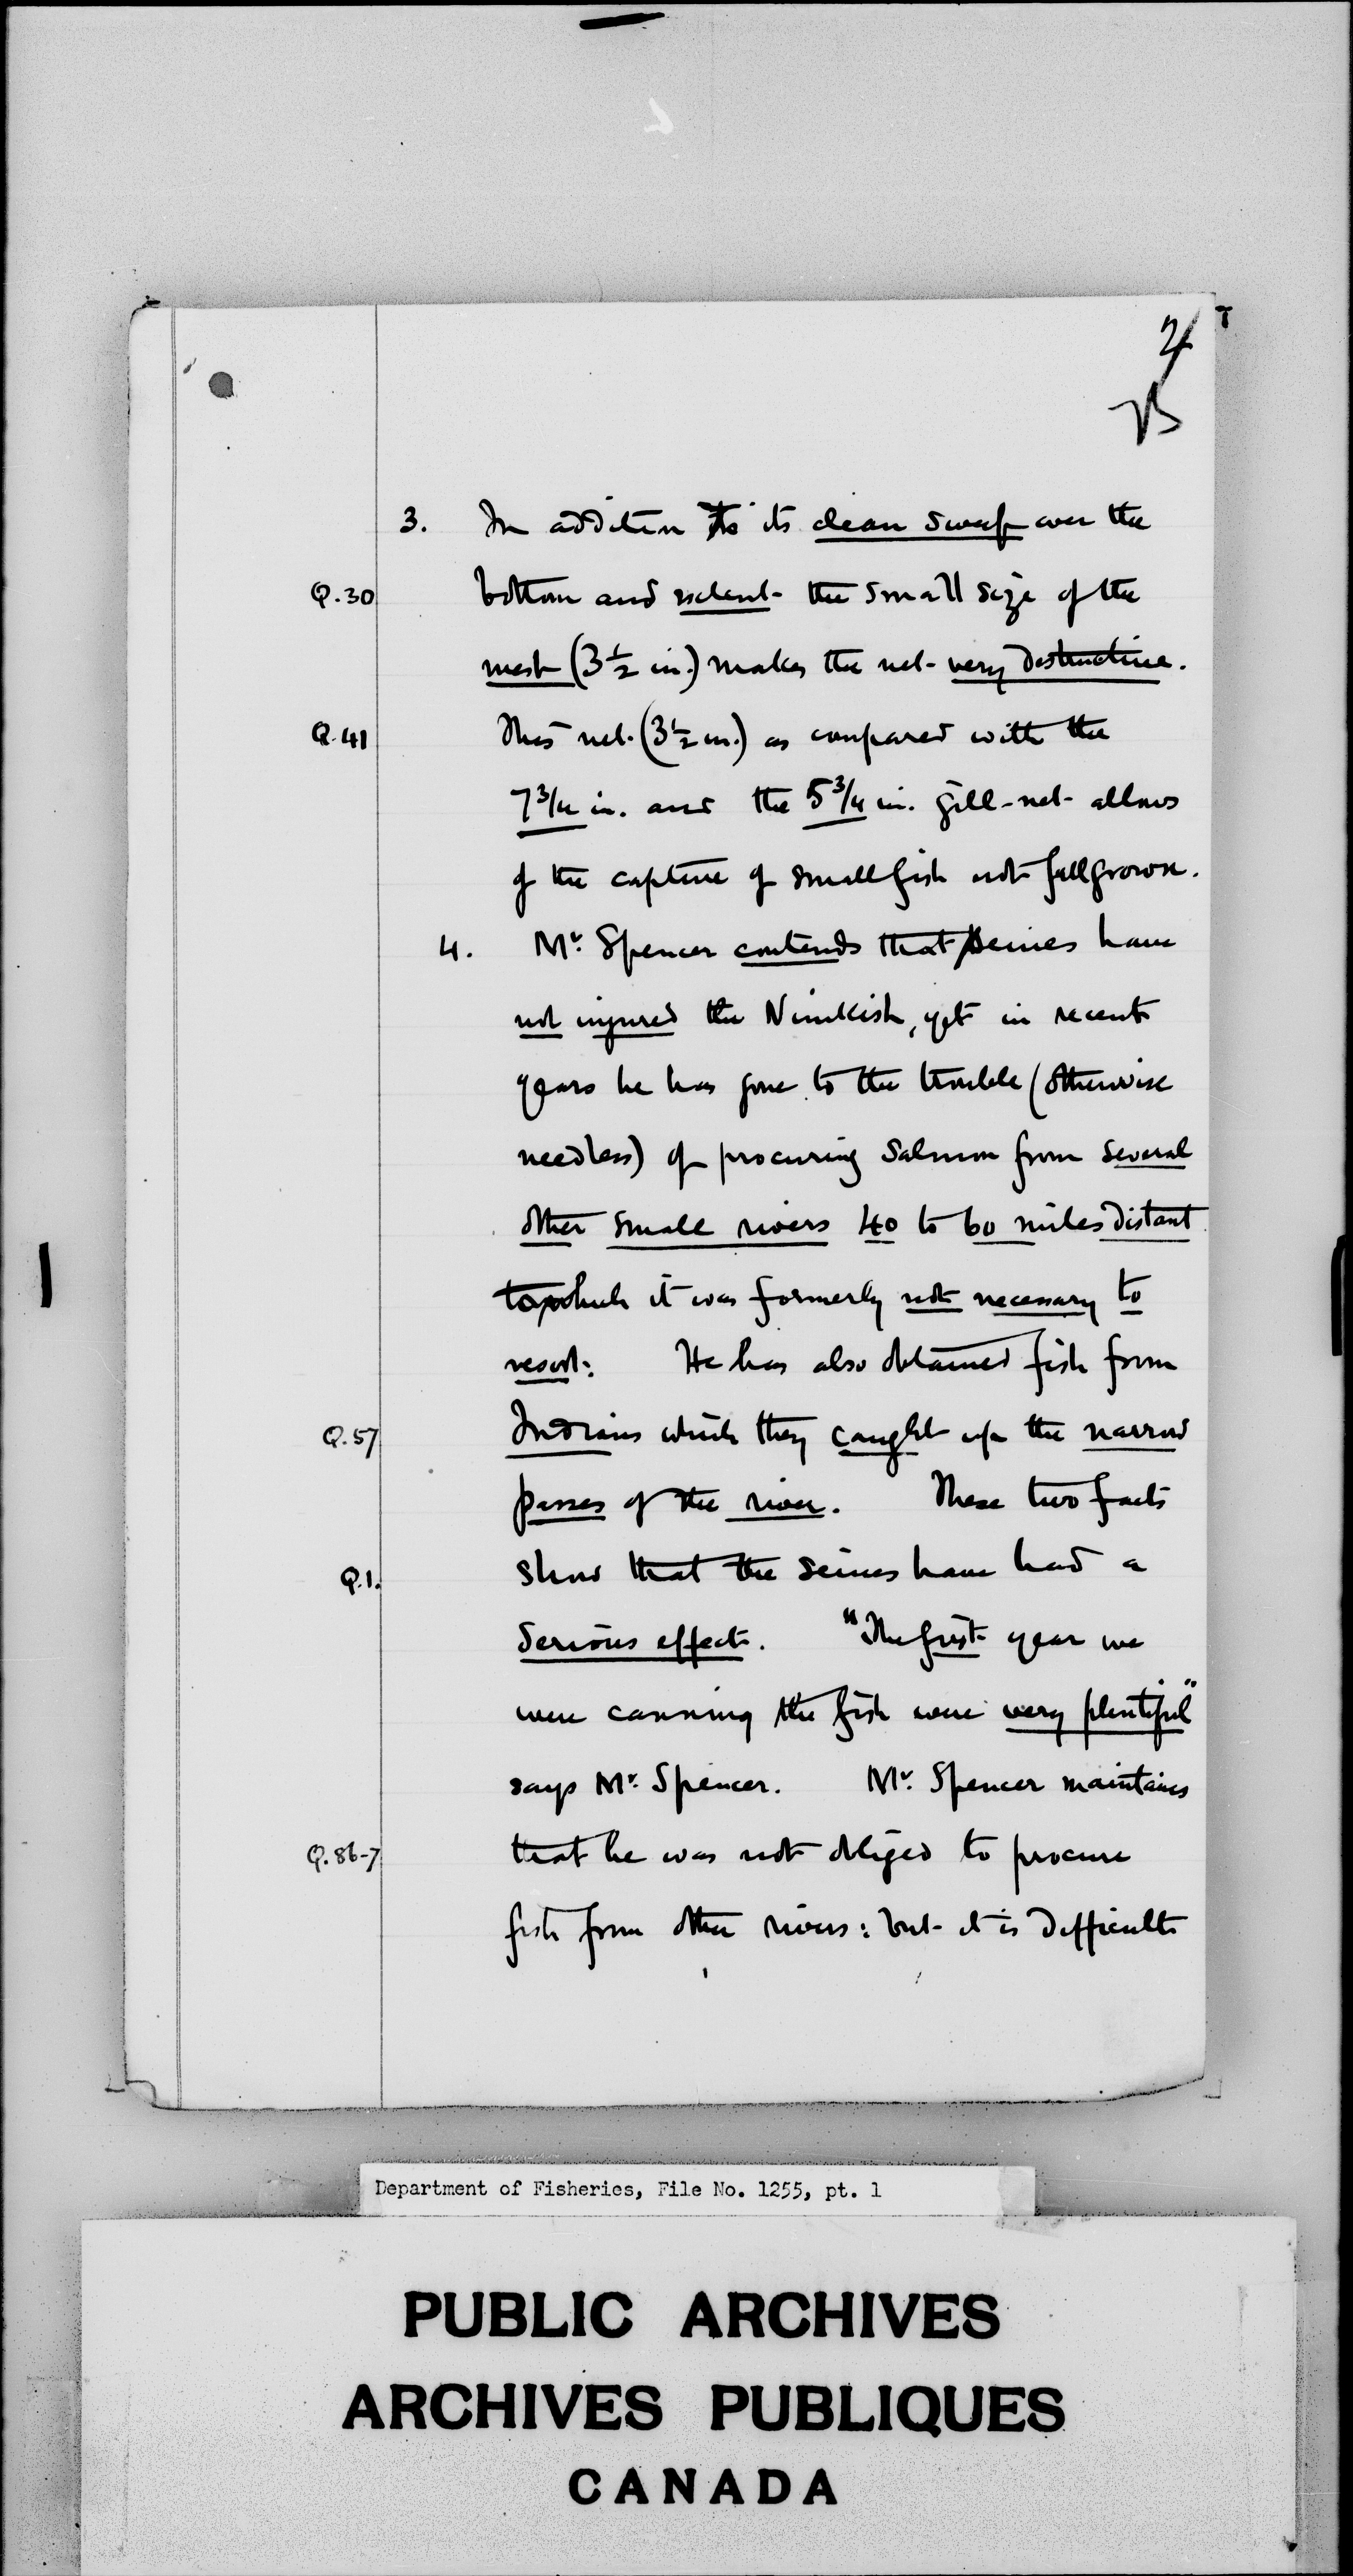 2
3. In addition to its clean sweep over the
Q.30 bottom and extent the small size of the
mesh (3½ in.) makes the net very destructive.
Q.41 This net (3½ in.) as compared with the
7¾ in. and the 5¾ in. gill-net allows
of the capture of small fish not full grown.
4. Mr. Spencer contends that seines have
not injured the Nimkish, yet in recent
years he has gone to the trouble (otherwise
needless) of procuring salmon from several
other small rivers 40 to 60 miles distant
to which it was formerly not necessary to
resort. He has also obtained fish from
Q.57 Indians which they caught up the narrow
passes of the river. These two facts
Q.1. show that the seines have had a
serious effect. "The first year we
were canning the fish were very plentiful"
says Mr. Spencer. Mr. Spencer maintains
Q.86-7 that he was not obliged to procure
fish from other rivers: but it is difficult
Department of Fisheries, File No. 1255, pt. 1
PUBLIC ARCHIVES
ARCHIVES PUBLIQUES
CANADA